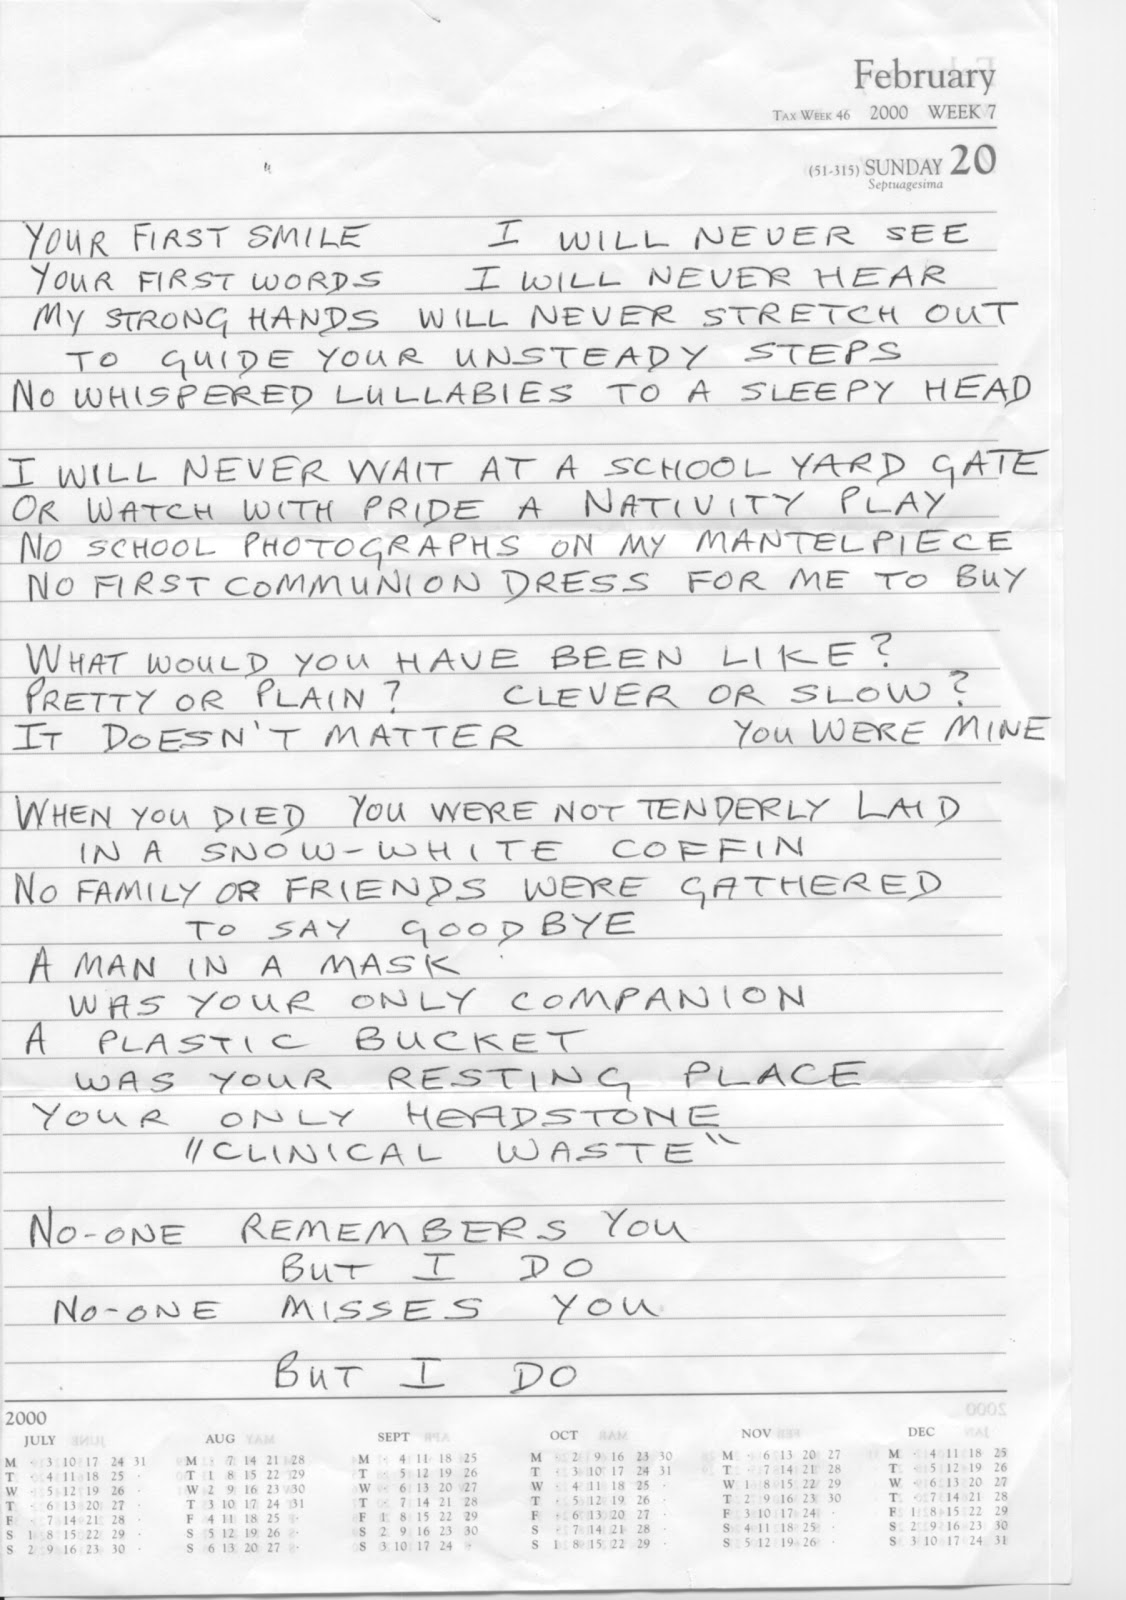 February
TAX WEEK 46 2000 WEEK 7
(51-315) SUNDAY 20
Septuagesima
YOUR FIRST SMILE I WILL NEVER SEE
YOUR FIRST WORDS I WILL NEVER HEAR
MY STRONG HANDS WILL NEVER STRETCH OUT
TO GUIDE YOUR UNSTEADY STEPS
NO WHISPERED LULLABIES TO A SLEEPY HEAD
I WILL NEVER WAIT AT A SCHOOL YARD GATE
OR WATCH WITH PRIDE A NATIVITY PLAY
NO SCHOOL PHOTOGRAPHS ON MY MANTELPIECE
NO FIRST COMMUNION DRESS FOR ME TO BUY
WHAT WOULD YOU HAVE BEEN LIKE?
PRETTY OR PLAIN? CLEVER OR SLOW?
IT DOESN'T MATTER YOU WERE MINE
WHEN YOU DIED YOU WERE NOT TENDERLY LAID
IN A SNOW-WHITE COFFIN
NO FAMILY OR FRIENDS WERE GATHERED
TO SAY GOODBYE
A MAN IN A MASK
WAS YOUR ONLY COMPANION
A PLASTIC BUCKET
WAS YOUR RESTING PLACE
YOUR ONLY HEADSTONE
"CLINICAL WASTE"
NO-ONE REMEMBERS YOU
BUT I DO
NO-ONE MISSES YOU
BUT I DO
2000
JULY AUG SEPT OCT NOV DEC
M 3 10 17 24 31 M 7 14 21 28 M 4 11 18 25 M 2 9 16 23 30 M 6 13 20 27 M 4 11 18 25
T 4 11 18 25 T 1 8 15 22 29 T 5 12 19 26 T 3 10 17 24 31 T 7 14 21 28 T 5 12 19 26
W 5 12 19 26 W 2 9 16 23 30 W 6 13 20 27 W 4 11 18 25 W 1 8 15 22 29 W 6 13 20 27
T 6 13 20 27 T 3 10 17 24 31 T 7 14 21 28 T 5 12 19 26 T 2 9 16 23 30 T 7 14 21 28
F 7 14 21 28 F 4 11 18 25 F 1 8 15 22 29 F 6 13 20 27 F 3 10 17 24 F 1 8 15 22 29
S 1 8 15 22 29 S 5 12 19 26 S 2 9 16 23 30 S 7 14 21 28 S 4 11 18 25 S 2 9 16 23 30
S 2 9 16 23 30 S 6 13 20 27 S 3 10 17 24 S 1 8 15 22 29 S 5 12 19 26 S 3 10 17 24 31